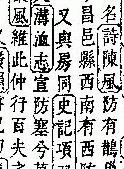 名詩陳風防有鵲
昌邑縣西南有西防
又與房同史記項
溝洫志宣防塞兮
風維此仲行百夫之